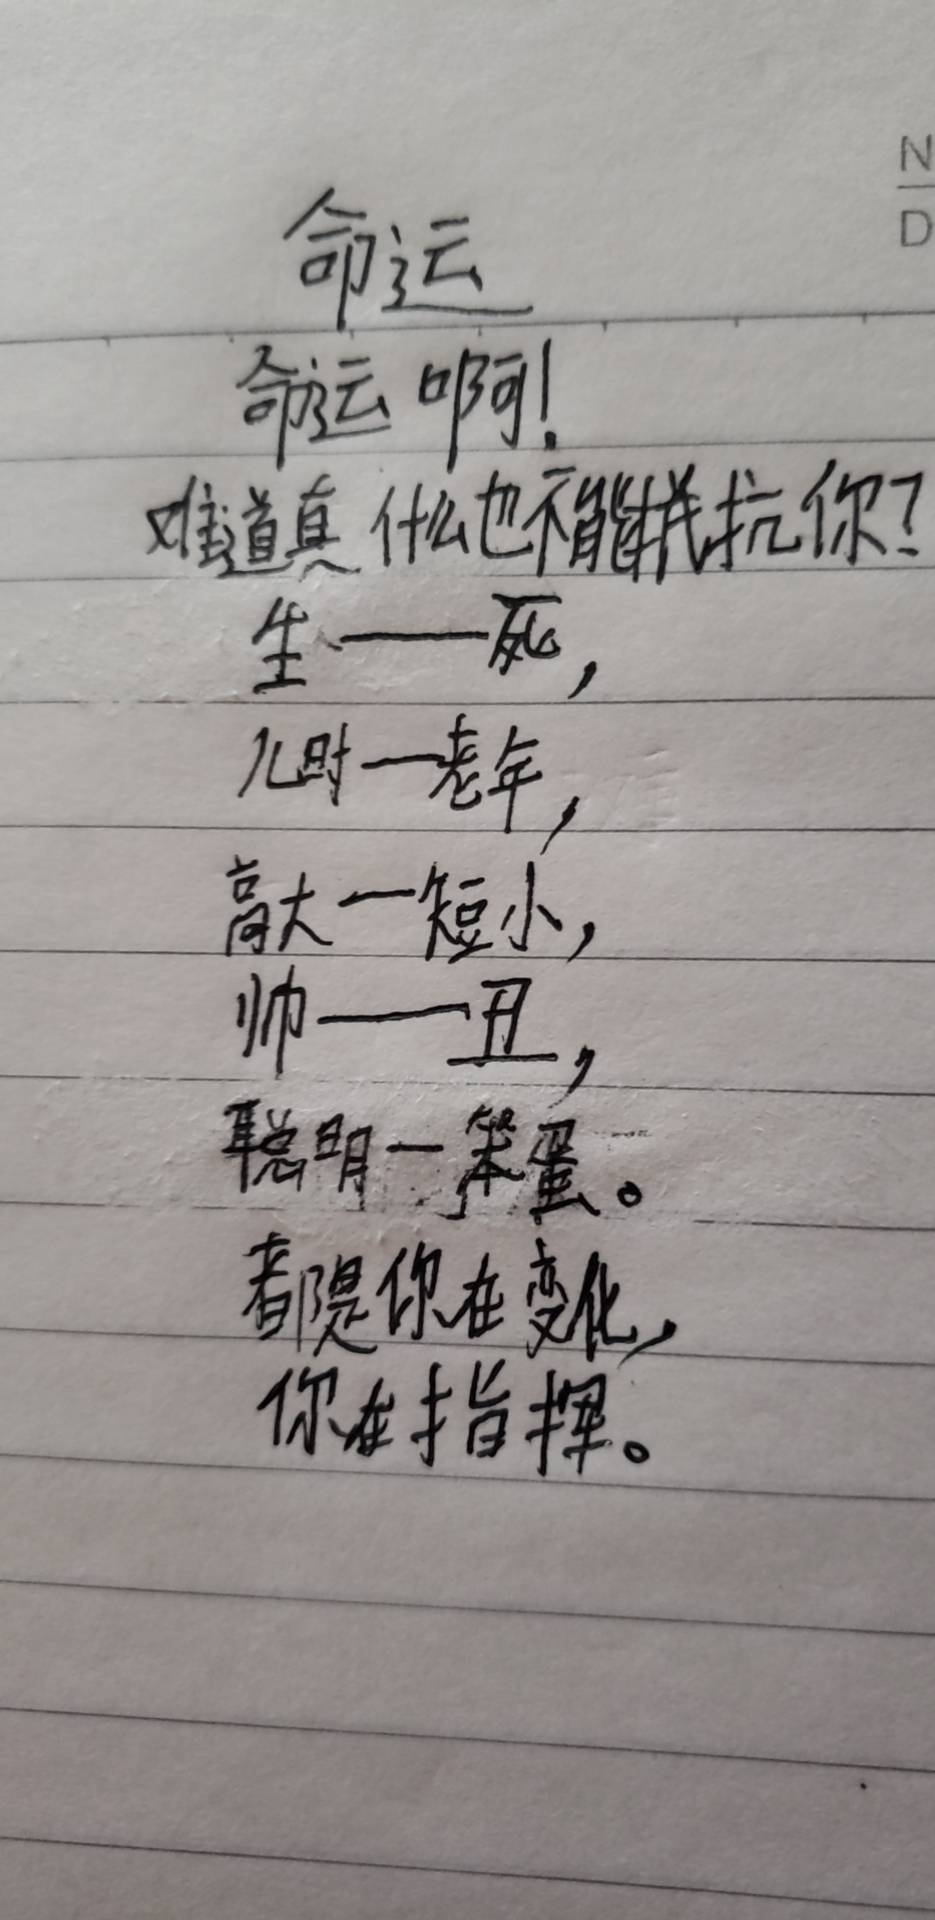 N
D
命运
命运啊!
难道真什么也不能抵抗你?
生——死,
儿时—老年,
高大—短小,
帅——丑,
聪明—笨蛋。
都是你在变化,
你在指挥。